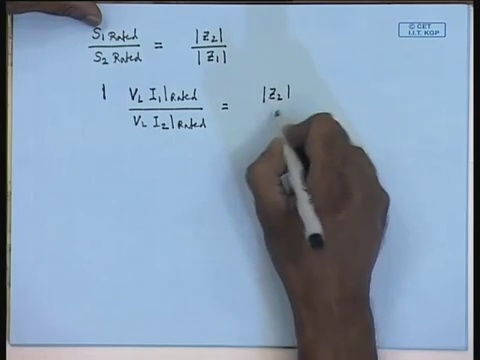 © CET
I.I.T. KGP
S1 Rated / S2 Rated = |Z2| / |Z1|
VL I1|Rated / VL I2|Rated = |Z2|